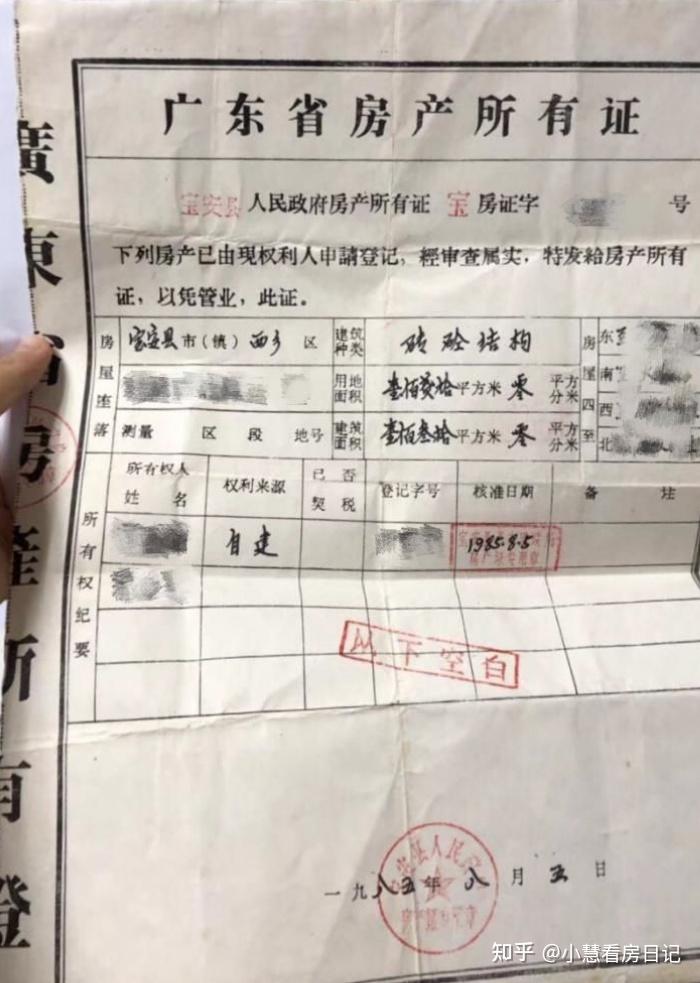 广东省房产所有证
宝安县人民政府房产所有证 宝房证字 号
下列房产已由现权利人申請登记，經审查属实，特发給房产所有
证，以凭管业，此证。
房屋座落 宝安县市（镇）西乡区 建筑种类 砖砼结构 房屋四至 东
用地面积 壹佰贰拾平方米零平方分米 南
西
测量 区 段 地号 建筑面积 壹佰叁拾平方米零平方分米 北
所有权纪要
所有权人姓名 权利来源 已否契税 登记字号 核准日期 备 注
自建 1985.8.5
以下空白
一九八五年八月五日
廣東省房産所有證
知乎 @小慧看房日记